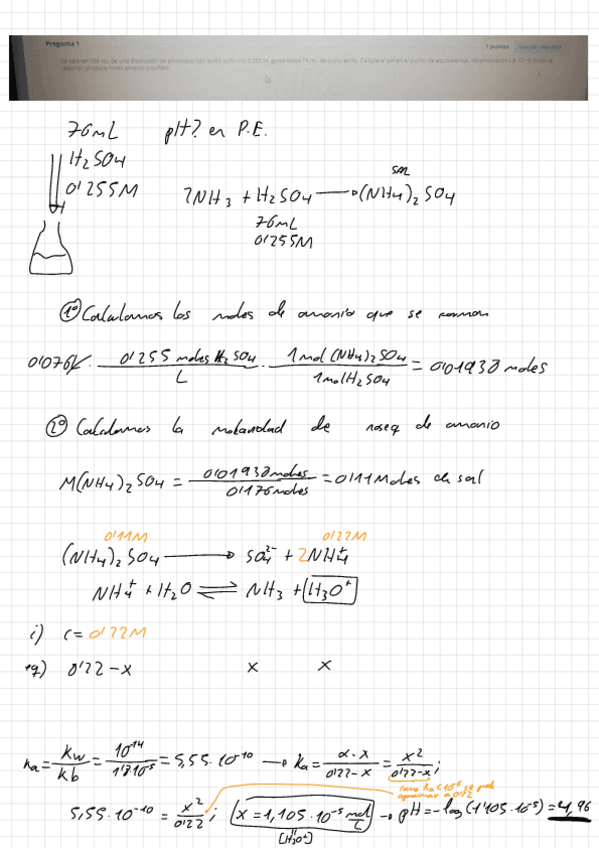 Pregunta 1
1 puntos
Se valoran 100 mL de una disolución de amoniaco con ácido sulfúrico 0,255 M, gastándose 76 mL de dicho ácido. Calcule el pH en el punto de equivalencia.
reacción produce iones amonio y sulfato.
76mL pH? en P.E.
H2SO4
0'255M
sal
2NH3 + H2SO4 ⟶ (NH4)2SO4
76mL
0'255M
1º Calculamos los moles de amonio que se forman
0'076L · 0'255 moles H2SO4 / L · 1mol (NH4)2SO4 / 1mol H2SO4 = 0'01938 moles
2º Calculamos la molaridad de de amonio
M(NH4)2SO4 = 0'01938moles / 0'176moles = 0'11 Moles de sal
0'11M 0'22M
(NH4)2SO4 ⟶ SO4²⁻ + 2NH4⁺
NH4⁺ + H2O ⇌ NH3 + H3O⁺
i) C = 0'22M
eq) 0'22-x x x
Ka = Kw / Kb = 10⁻¹⁴ / 1'8·10⁻⁵ = 5,55·10⁻¹⁰ ⟶ Ka = x·x / 0'22-x = x² / 0'22-x ;
como Ka<10⁻⁵ se puede
aproximar a 0'22
5,55·10⁻¹⁰ = x² / 0'22 ; x = 1,105·10⁻⁵ mol/L ⟶ pH = -log(1'105·10⁻⁵) = 4,96
[H3O⁺]